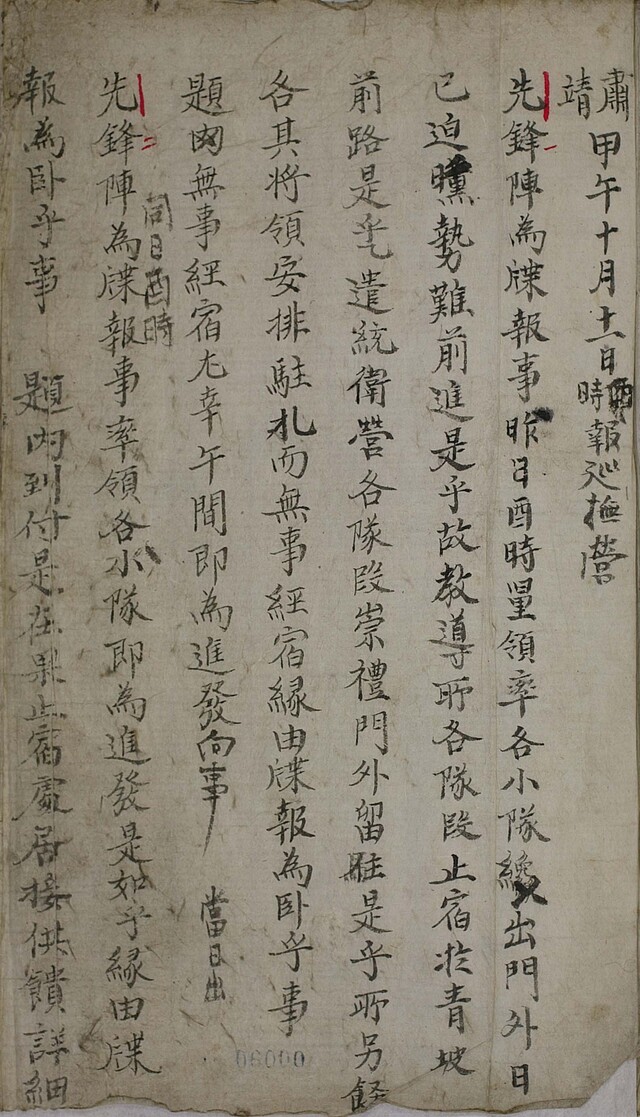 肅靖
甲午十月十二日酉時報巡撫營
先鋒陣為牒報事昨日酉時量領率各小隊纔出門外日
已迫曛勢難前進是乎故教導所各隊段止宿於青坡
前路是乎遣統衛營各隊段崇禮門外留駐是乎所另飭
各其將領安排駐札而無事經宿緣由牒報為卧乎事
題內無事經宿尤幸午間即為進發向事 當日出
同日酉時
先鋒陣為牒報事率領各小隊即為進發是如乎緣由牒
報為卧乎事 題內到付是在果止宿處居接供饋詳細
00090